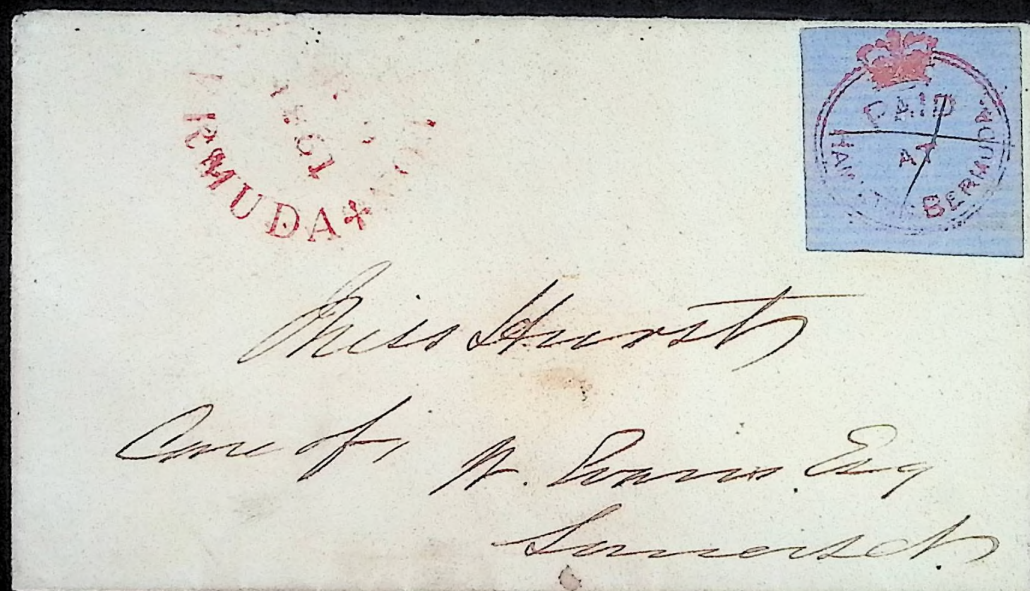 RMUDA
61
PAID
AT
BERMUDA.
Miss Hurst
Care of,
W. Evans. Esq
Somerset